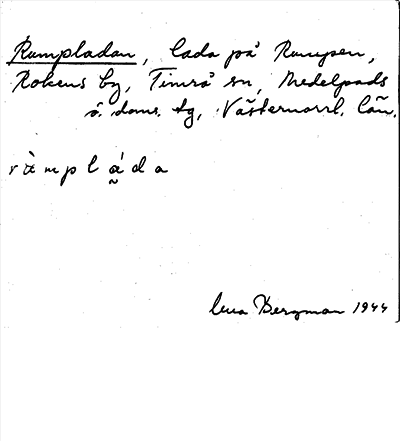 Rumpladan, lada på Rumpen,
Rökens by, Timrå sn, Medelpads
ö. doms. tg, Västernorrl. län.
ràmpláda
Bergman 1944